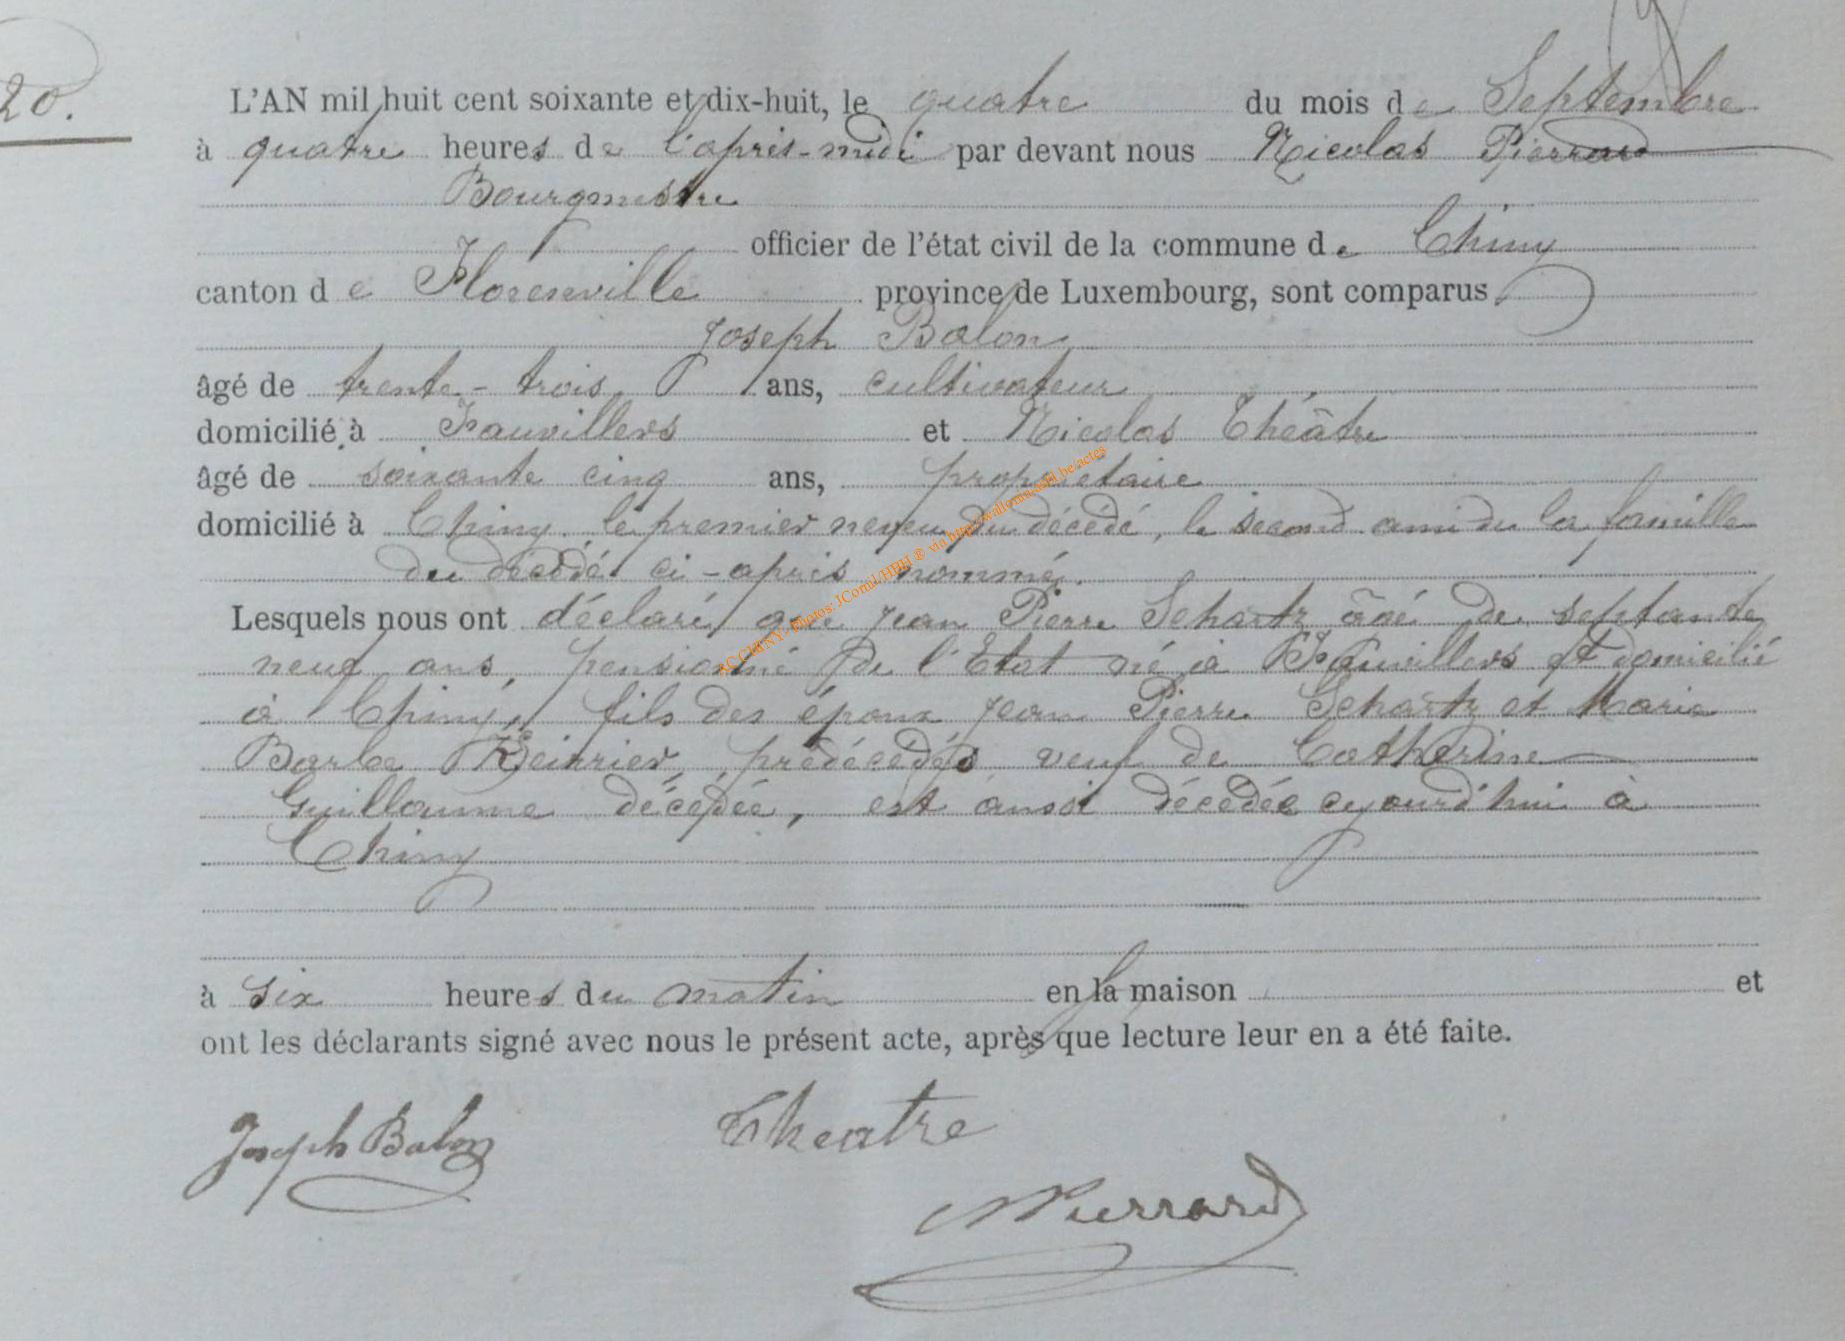 20.
L'AN mil huit cent soixante et dix-huit, le quatre du mois de Septembre
à quatre heures de l'après-midi par devant nous Nicolas Pierrard
Bourgmestre
officier de l'état civil de la commune de Chiny
canton de Florenville province de Luxembourg, sont comparus
Joseph Balon
âgé de trente-trois ans, cultivateur
domicilié à Fauvillers et Nicolas Théâtre
âgé de soixante cinq ans, propriétaire
domicilié à Chiny, le premier neveu du décédé, le second ami de la famille
du décédé ci-après nommé.
Lesquels nous ont déclaré que Jean Pierre Schartz âgé de septante
neuf ans, pensionné de l'Etat né à Fauvillers et domicilié
à Chiny, fils des époux Jean Pierre Schartz et Marie
Barbe prédécédés veuf de Catherine
Guillaume décédée, est aussi décédée cejourd'hui à
Chiny
à six heures du matin en la maison et
ont les déclarants signé avec nous le présent acte, après que lecture leur en a été faite.
Joseph Balon Theatre
NPierrard